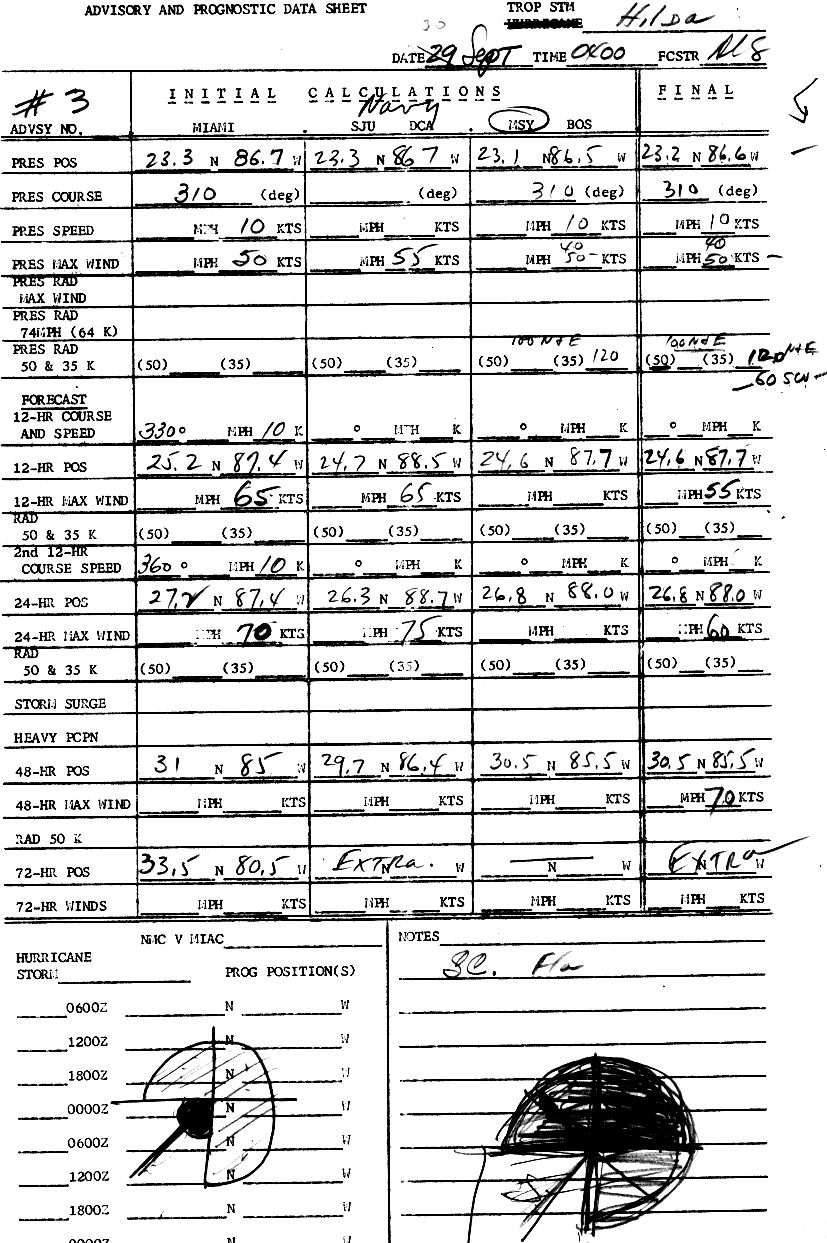 ADVISORY AND PROGNOSTIC DATA SHEET TROP STM
30 HURRICANE Hilda
DATE 29 Sept TIME 0400 FCSTR
# 3 INITIAL CALCULATIONS FINAL
Navy
ADVSY NO. MIAMI SJU DCA MSY BOS
PRES POS 23.3 N 86.7 W 23.3 N 86 7 W 23.1 N 86.5 W 23.2 N 86.6 W
PRES COURSE 310 (deg) (deg) 310 (deg) 310 (deg)
PRES SPEED MPH 10 KTS MPH KTS MPH 10 KTS MPH 10 KTS
40 40
PRES MAX WIND MPH 50 KTS MPH 55 KTS MPH 50 KTS MPH 50 KTS
PRES RAD
MAX WIND
PRES RAD
74MPH (64 K)
PRES RAD 100 N+E 100 N+E
50 & 35 K (50) (35) (50) (35) (50) (35) 120 (50) (35) 120 N+E
60 SW
FORECAST
12-HR COURSE
AND SPEED 330° MPH 10 K ° MPH K ° MPH K ° MPH K
12-HR POS 25.2 N 87.4 W 24.7 N 88.5 W 24.6 N 87.7 W 24.6 N 87.7 W
12-HR MAX WIND MPH 65 KTS MPH 65 KTS MPH KTS MPH 55 KTS
RAD
50 & 35 K (50) (35) (50) (35) (50) (35) (50) (35)
2nd 12-HR
COURSE SPEED 360 ° MPH 10 K ° MPH K ° MPH K ° MPH K
24-HR POS 27.2 N 87.4 W 26.3 N 88.7 W 26.8 N 88.0 W 26.8 N 88.0 W
24-HR MAX WIND MPH 70 KTS MPH 75 KTS MPH KTS MPH 60 KTS
RAD
50 & 35 K (50) (35) (50) (35) (50) (35) (50) (35)
STORM SURGE
HEAVY PCPN
48-HR POS 31 N 85 W 29.7 N 86.4 W 30.5 N 85.5 W 30.5 N 85.5 W
48-HR MAX WIND MPH KTS MPH KTS MPH KTS MPH 70 KTS
RAD 50 K
72-HR POS 33.5 N 80.5 W EXTRa. N W N W EXTRa N W
72-HR WINDS MPH KTS MPH KTS MPH KTS MPH KTS
NMC V MIAC NOTES
HURRICANE
STORM PROG POSITION(S) Fla
0600Z N W
1200Z N W
1800Z N W
0000Z N W
0600Z N W
1200Z N W
1800Z N W
0000Z N W